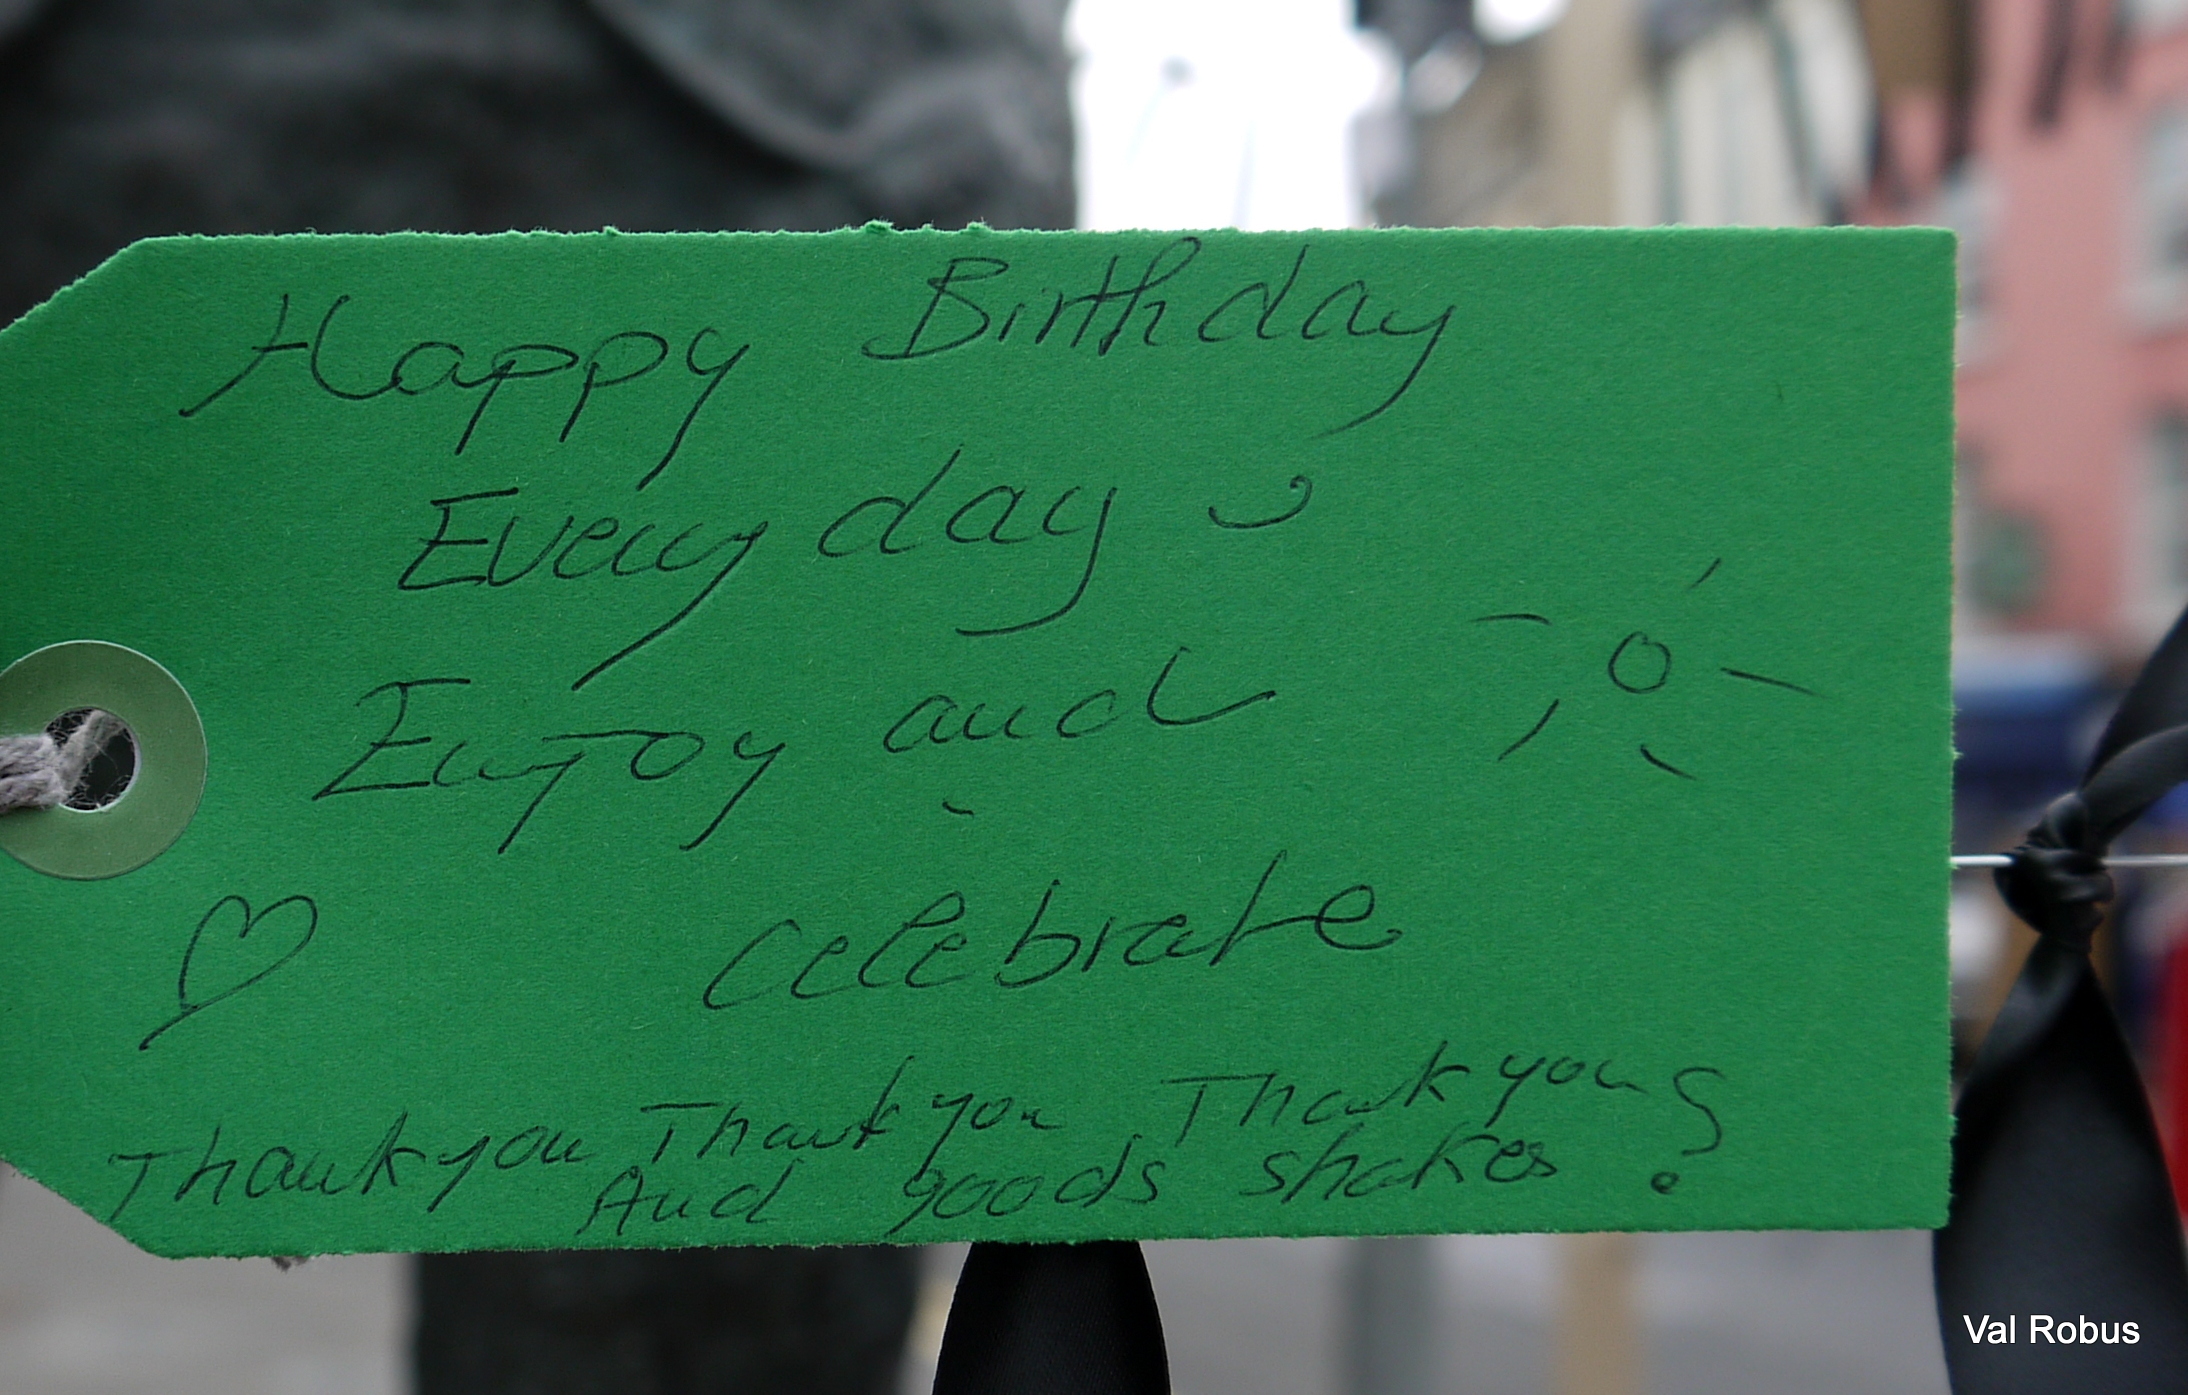 Happy Birthday
Every day
Enjoy and
celebrate
Thank you Thank you Thank you
And goods shakes
Val Robus